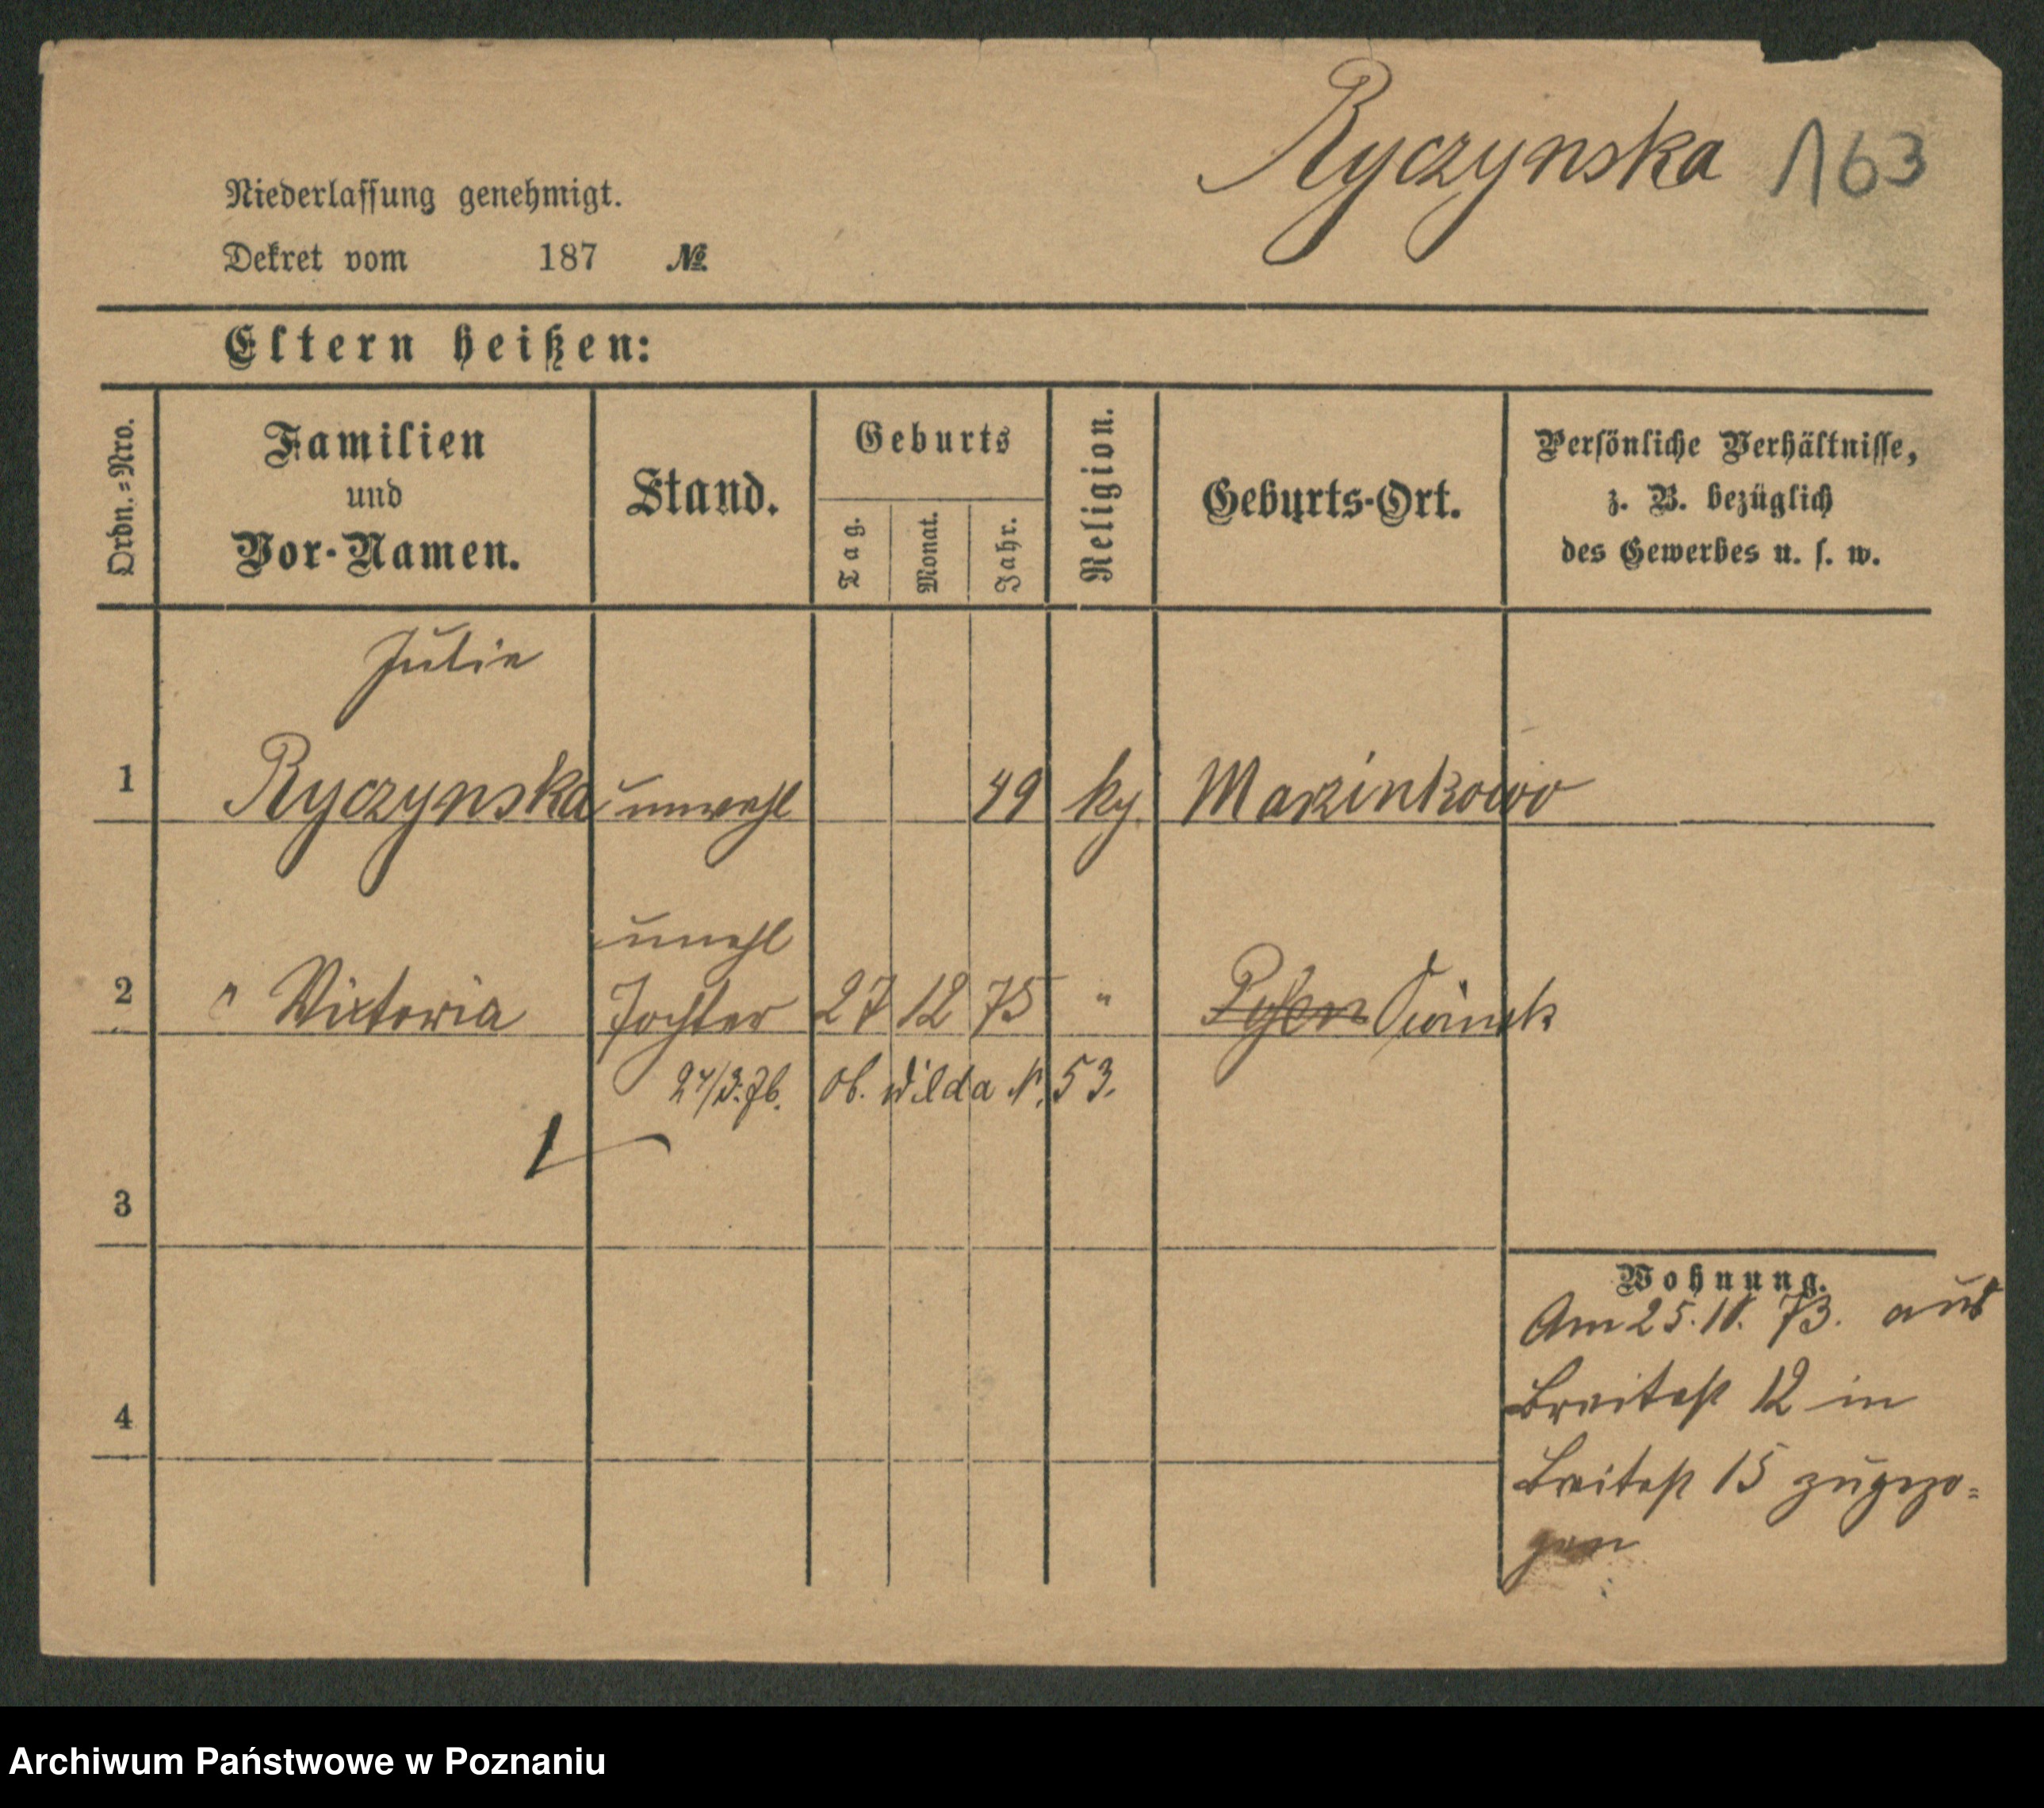 Ryczynska 163
Niederlassung genehmigt.
Dekret vom 187 №
Eltern heißen:
Ordn.=Nro.
Familien
und
Vor-Namen.
Stand.
Geburts
Tag.
Monat.
Jahr.
Religion.
Geburts-Ort.
Persönliche Verhältnisse,
z. B. bezüglich
des Gewerbes u. s. w.
Julie
1 Ryczynska unvehl 49 kg. Marzinkowo
unehl
2 " Victoria Tochter 27 12 75 " Posen
24/3.76. Ob. Wilda N. 53.
3
Wohnung.
Am 25.11.73. aus
Breitest 12 in
4
Breitest 15 zugezo=
gen
Archiwum Państwowe w Poznaniu